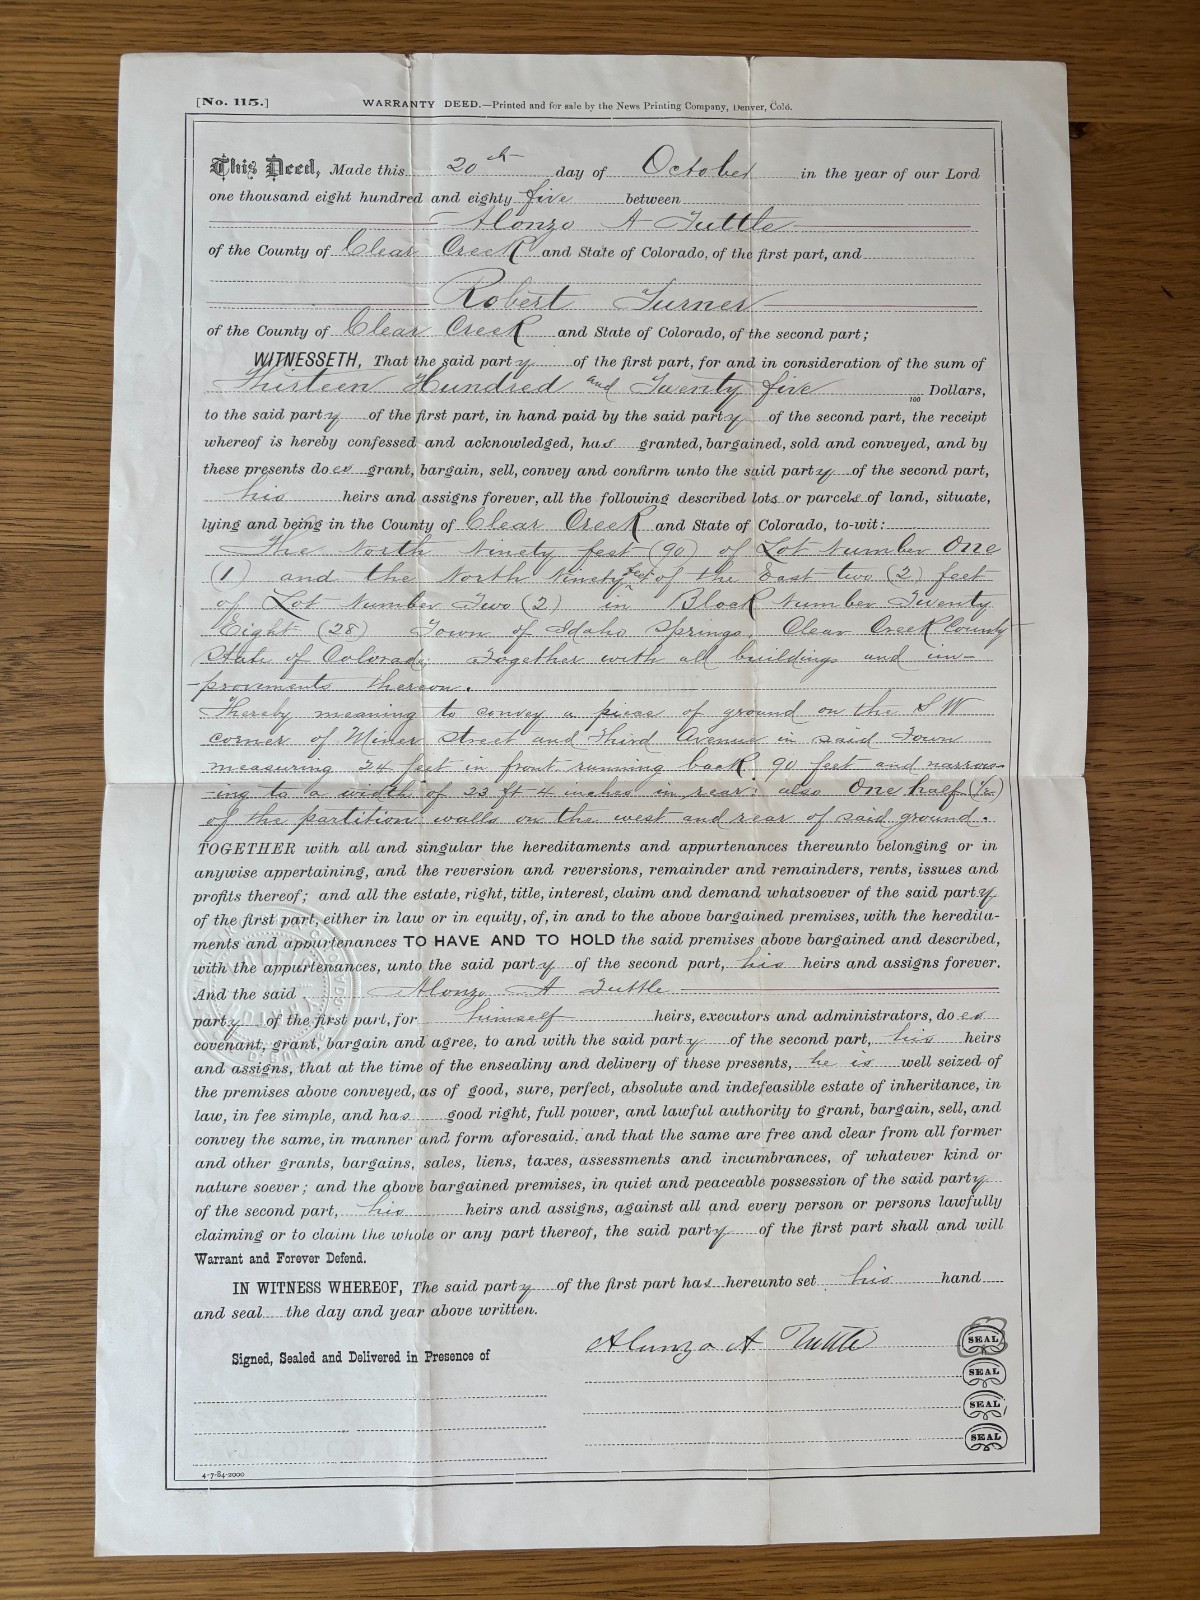 [No. 115.]
WARRANTY DEED.—Printed and for sale by the News Printing Company, Denver, Colo.
This Deed, Made this 20th day of October in the year of our Lord
one thousand eight hundred and eighty five between
Alonzo A Tuttle
of the County of Clear Creek and State of Colorado, of the first part, and
Robert Turner
of the County of Clear Creek and State of Colorado, of the second part;
WITNESSETH, That the said party of the first part, for and in consideration of the sum of
Thirteen Hundred and Twenty five 100 Dollars,
to the said party of the first part, in hand paid by the said party of the second part, the receipt
whereof is hereby confessed and acknowledged, has granted, bargained, sold and conveyed, and by
these presents does grant, bargain, sell, convey and confirm unto the said party of the second part,
his heirs and assigns forever, all the following described lots or parcels of land, situate,
lying and being in the County of Clear Creek and State of Colorado, to-wit:
The North Ninety feet (90) of Lot Number One
(1) and the North Ninety feet of the East two (2) feet
of Lot Number Two (2) in Block Number Twenty
Eight (28) Town of Idaho Springs, Clear Creek County
State of Colorado, Together with all buildings and im-
-provements thereon.
Thereby meaning to convey a piece of ground on the SW
corner of Miner Street and Third Avenue in said Town
measuring 24 feet in front running back 90 feet and narrow-
-ing to a width of 23 ft 4 inches in rear; also One half (1/2)
of the partition walls on the west and rear of said ground.
TOGETHER with all and singular the hereditaments and appurtenances thereunto belonging or in
anywise appertaining, and the reversion and reversions, remainder and remainders, rents, issues and
profits thereof; and all the estate, right, title, interest, claim and demand whatsoever of the said party
of the first part, either in law or in equity, of, in and to the above bargained premises, with the heredita-
ments and appurtenances TO HAVE AND TO HOLD the said premises above bargained and described,
with the appurtenances, unto the said party of the second part, his heirs and assigns forever.
And the said Alonzo A Tuttle
party of the first part, for himself heirs, executors and administrators, does
covenant, grant, bargain and agree, to and with the said party of the second part, his heirs
and assigns, that at the time of the ensealing and delivery of these presents, he is well seized of
the premises above conveyed, as of good, sure, perfect, absolute and indefeasible estate of inheritance, in
law, in fee simple, and has good right, full power, and lawful authority to grant, bargain, sell, and
convey the same, in manner and form aforesaid; and that the same are free and clear from all former
and other grants, bargains, sales, liens, taxes, assessments and incumbrances, of whatever kind or
nature soever; and the above bargained premises, in quiet and peaceable possession of the said party
of the second part, his heirs and assigns, against all and every person or persons lawfully
claiming or to claim the whole or any part thereof, the said party of the first part shall and will
Warrant and Forever Defend.
IN WITNESS WHEREOF, The said party of the first part has hereunto set his hand
and seal the day and year above written.
Signed, Sealed and Delivered in Presence of
Alonzo A Tuttle SEAL
SEAL
SEAL
SEAL
4-7-84-2000